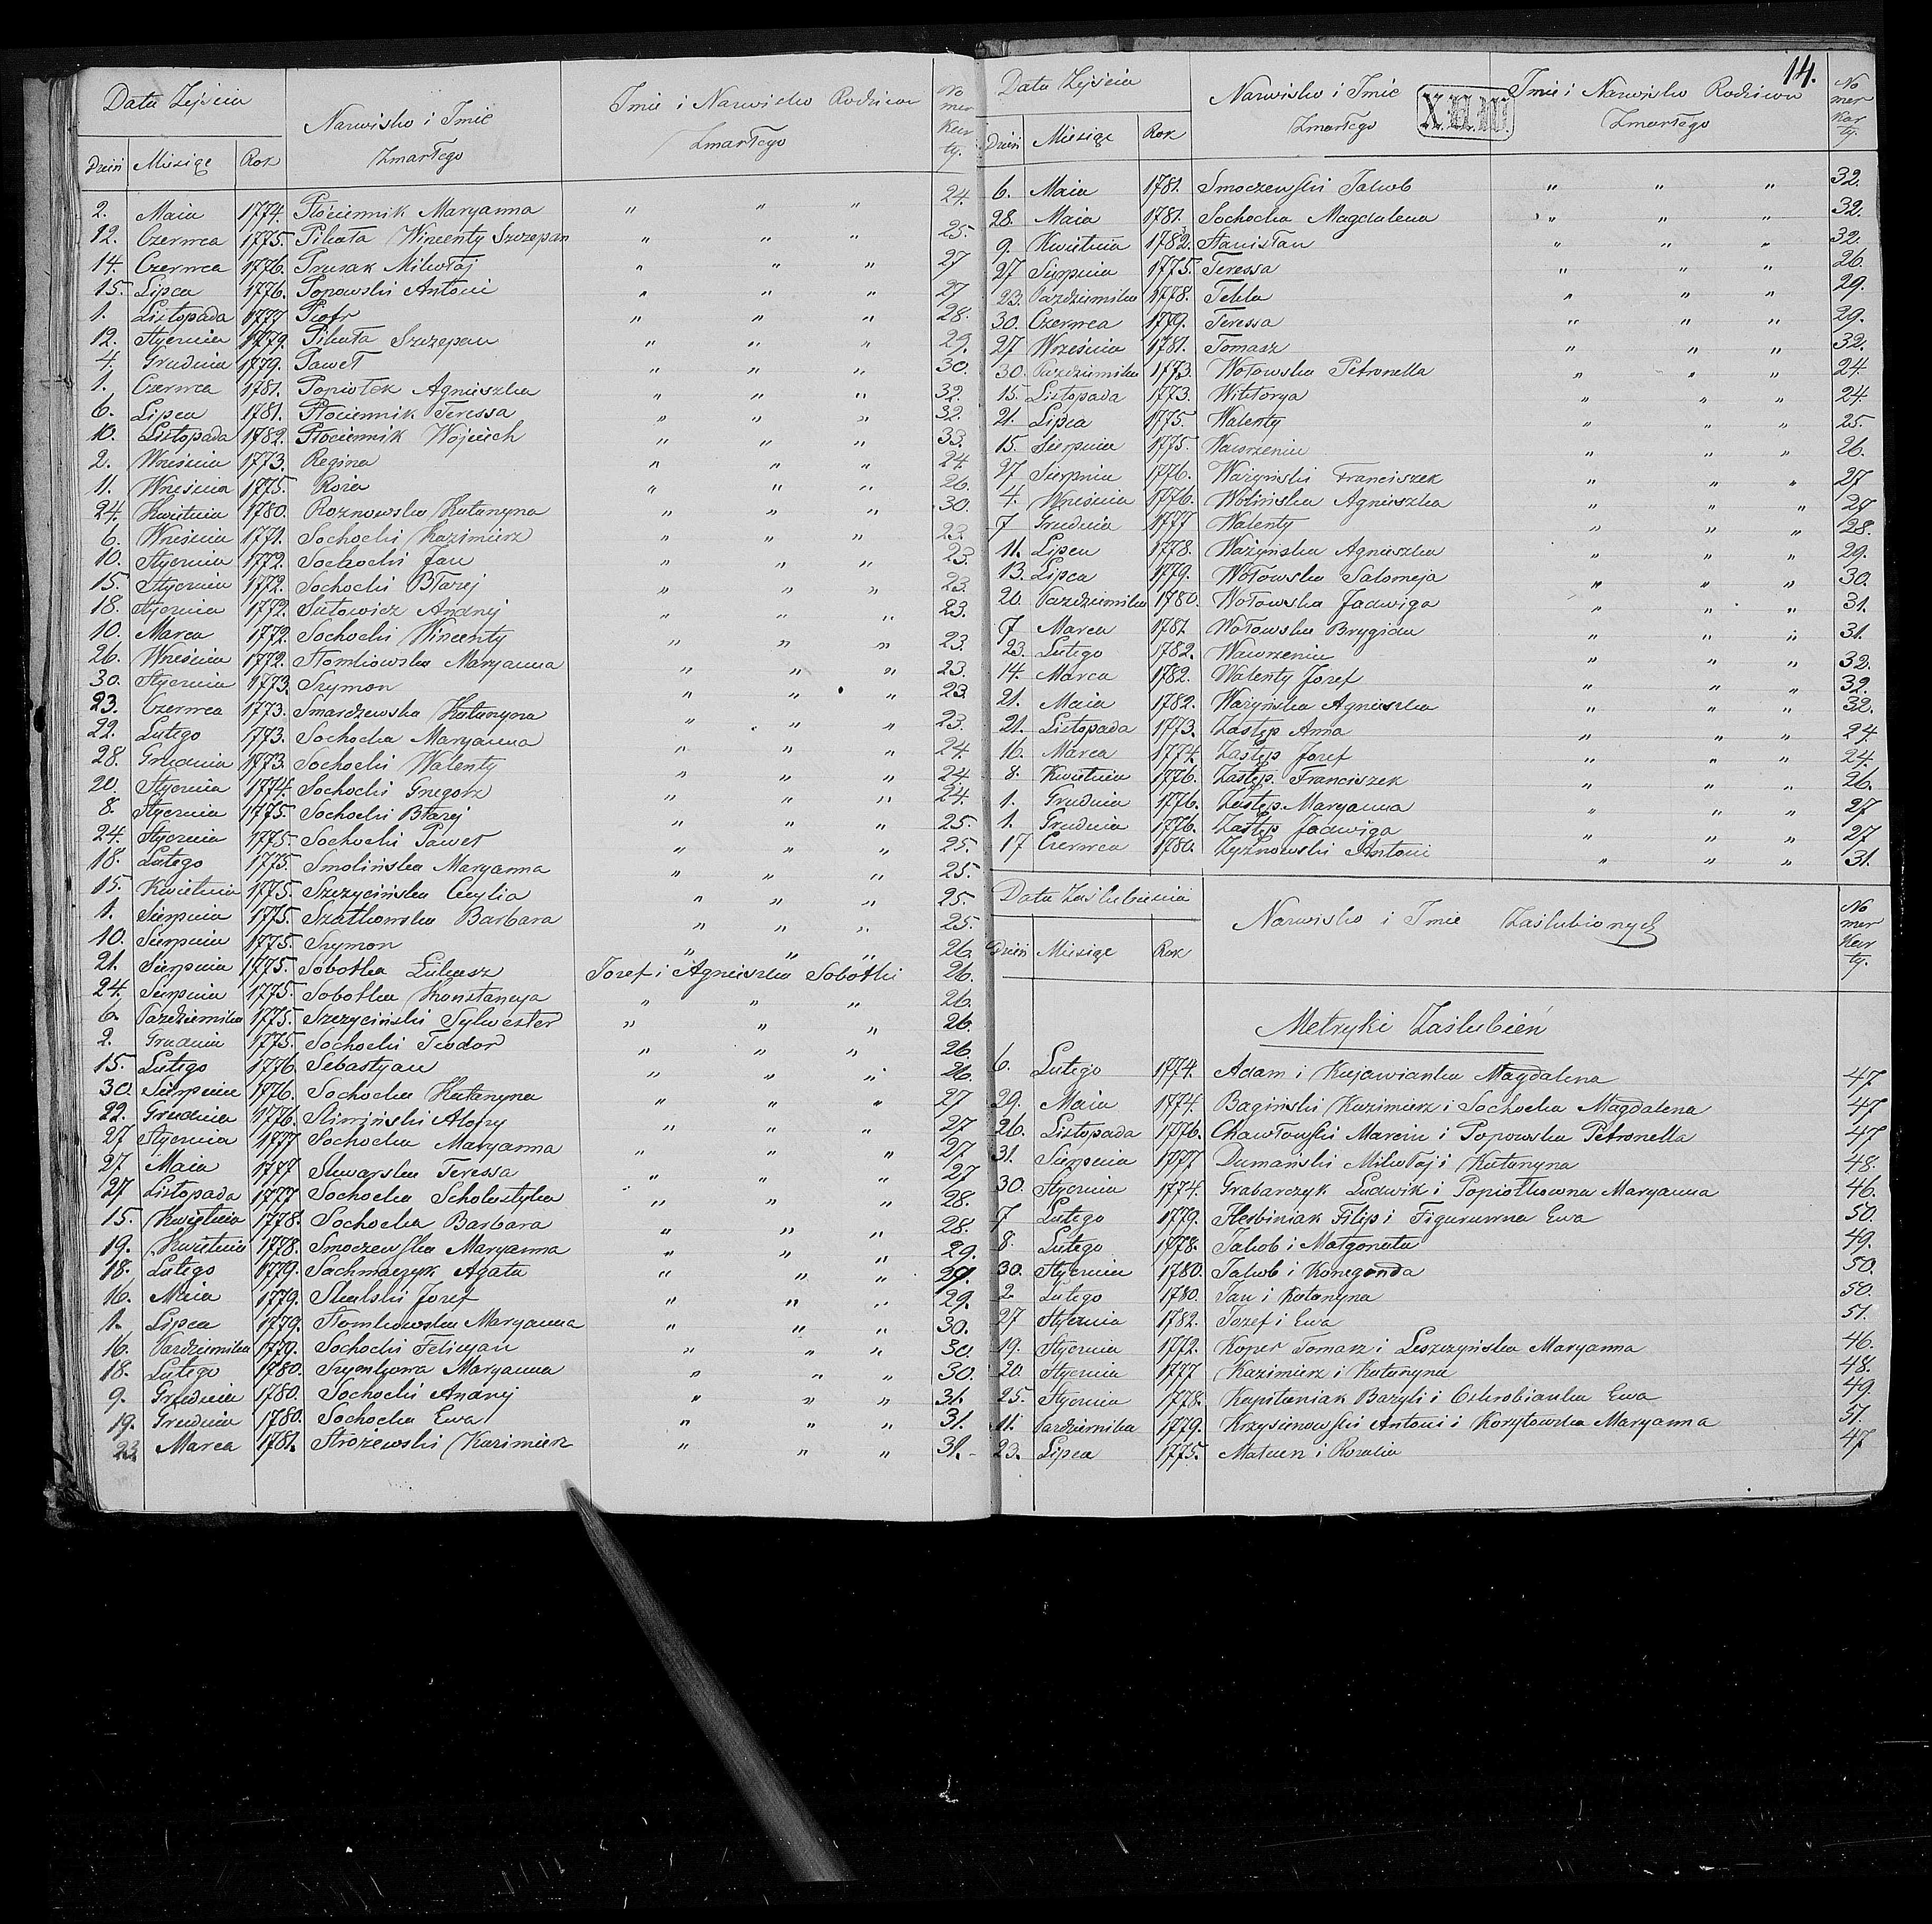 Data Zejścia
Nazwisko i Imie Zmarłego
Imie i Nazwisko Rodziców Zmarłego
No mer Kar ty.
Dzień Miesiąc Rok
2. Maia 1774. Płóciennik Maryanna " " " 24.
12. Czerwca 1775. Pikała Wincenty Szczepan " " " 25.
14. Czerwca 1776. Prusak Mikołaj " " " 27
15. Lipca 1776. Popowski Antoni " " " 27
1. Listopada 1777 Piotr " " " 28.
12. Stycznia 1779. Pikała Szczepan " " " 29.
4. Grudnia 1779. Paweł " " " 30.
1. Czerwca 1781. Popiołek Agnieszka " " " 32.
6. Lipca 1781. Płóciennik Teressa " " " 32.
10. Listopada 1782. Płóciennik Wojciech " " " 33.
2. Wrzesnia 1773. Regina " " " 24.
11. Wrzesnia 1775. Roża " " " 26.
24. Kwietnia 1780. Roznowska Katarzyna " " " 30.
6. Wrzesnia 1771. Sochocki Kazimierz " " " 23.
10. Stycznia 1772. Sochocki Jan " " " 23.
15. Stycznia 1772. Sochocki Błazej " " " 23.
18. Stycznia 1772. Sutowicz Andrzej " " " 23.
10. Marca 1772. Sochocki Wincenty " " " 23.
26. Wrzesnia 1772. Słomkowska Maryanna " " " 23.
30. Stycznia 1773. Szymon " " " 23.
23. Czerwca 1773. Smardzewska Katarzyna " " " 23.
22. Lutego 1773. Sochocka Maryanna " " " 24.
28. Grudnia 1773. Sochocki Walenty " " " 24.
20. Stycznia 1774. Sochocki Grzegorz " " " 24.
8. Stycznia 1775. Sochocki Błazej " " " 25.
24. Stycznia 1775. Sochocki Paweł " " " 25.
18. Lutego 1775. Smolińska Maryanna " " " 25.
15. Kwietnia 1775. Szczycińska Cecylia " " " 25.
1. Sierpnia 1775. Szatkowska Barbara " " " 25.
10. Sierpnia 1775. Szymon " " " 26.
21. Sierpnia 1775. Sobotka Łukasz Jozef i Agnieszka Sobotki 26.
24. Sierpnia 1775. Sobotka Konstancya " " " 26.
6. Pazdziernika 1775. Szczyciński Sylwester " " " 26.
2. Grudnia 1775. Sochocki Teodor " " " 26.
15. Lutego 1776. Sebastyan " " " 26.
30. Sierpnia 1776. Sochocka Katarzyna " " " 27
22. Grudnia 1776. " " " 27
27 Stycznia 1777 Sochocka Maryanna " " " 27
27 Maia 1777 Skwarska Teressa " " " 27
27 Listopada 1777 Sochocka Scholastyka " " " 28.
15. Kwietnia 1778. Sochocka Barbara " " " 28.
19. Kwietnia 1778. Smoczewska Maryanna " " " 29.
18. Lutego 1779. Sachmaczyk Agata " " " 29.
16. Maia 1779. Skalski Jozef " " " 29.
1. Lipca 1779. Słomkowska Maryanna " " " 30.
16. Pazdziernika 1779. Sochocki Felicyan " " " 30.
18. Lutego 1780. Maryanna " " " 30.
9. Grudnia 1780. Sochocki Andrzej " " " 31.
19. Grudnia 1780. Sochocka Ewa " " " 31.
23. Marca 1781. Strożewski Kazimierz " " " 31.
14.
Data Zejścia
Nazwisko i Imie Zmarłego
Imie i Nazwisko Rodziców Zmarłego
No mer Kar ty.
Dzień Miesiąc Rok
6. Maia 1781. Smoczewski Jakob " " " 32.
28. Maia 1781. Sochocka Magdalena " " " 32.
9. Kwietnia 1782. Stanisław " " " 32.
27 Sierpnia 1775. Teressa " " " 26.
23. Pazdziernika 1778. Tekla " " " 29.
30. Czerwca 1779. Teressa " " " 29.
27 Wrzesnia 1781. Tomasz " " " 32.
30. Pazdziernika 1773. Wołowska Petronella " " " 24.
15. Listopada 1773. Wiktorya " " " 24.
21. Lipca 1775. Walenty " " " 25.
15. Sierpnia 1775. Wawrzeniec " " " 26.
27 Sierpnia 1776. Ważyński Franciszek " " " 27
4. Wrzesnia 1776. Wolińska Agnieszka " " " 27
7 Grudnia 1777 Walenty " " " 28.
11. Lipca 1778. Ważyńska Agnieszka " " " 29.
13. Lipca 1779. Wołowska Salomeja " " " 30.
20. Pazdziernika 1780. Wołowska Jadwiga " " " 31.
7 Marca 1781 Wołowska Brygida " " " 31.
23. Lutego 1782. Wawrzeniec " " " 32.
14. Marca 1782. Walenty Jozef " " " 32.
21. Maia 1782. Ważyńska Agnieszka " " " 32.
21. Listopada 1773. Zastęp Anna " " " 24.
16. Marca 1774. Zastęp Jozef " " " 24.
8. Kwietnia 1776. Zastęp Franciszek " " " 26.
1. Grudnia 1776. Zastęp Maryanna " " " 27
1. Grudnia 1776. Zastęp Jadwiga " " " 27
17 Czerwca 1780. Zyznowski Antoni " " " 31.
Data Zaślubienia
Nazwisko i Imie Zaślubionych
No mer Kar ty.
Dzień Miesiąc Rok
Metryki Zaślubień
6. Lutego 1774. Adam i Kujawianka Magdalena 47
29. Maia 1774. Bagiński Kazimierz i Sochocka Magdalena 47
26. Listopada 1776. Chawłowski Marcin i Popowska Petronella 47
31. Sierpnia 1777 Dumański Mikołaj i Katarzyna 48.
30. Stycznia 1774. Grabarczyk Ludwik i Popiołkowna Maryanna 46.
7 Lutego 1779. Filip i Ewa 50.
8. Lutego 1778. Jakob i Małgorzata 49.
30. Stycznia 1780. Jakob i Konegonda 50.
2. Lutego 1780. Jan i Katarzyna 50.
27 Stycznia 1782. Jozef i Ewa 51.
19. Stycznia 1772. Koper Tomasz i Leszczyńska Maryanna 46.
20. Stycznia 1777 Kazimierz i Katarzyna 48.
25. Stycznia 1778. Kapitaniak Bazyli i Oskrobianka Ewa 49.
11. Pazdziernika 1779. Krzysimowski Antoni i Korytowska Maryanna 51.
23. Lipca 1775. Mateusz i Rozalia 47